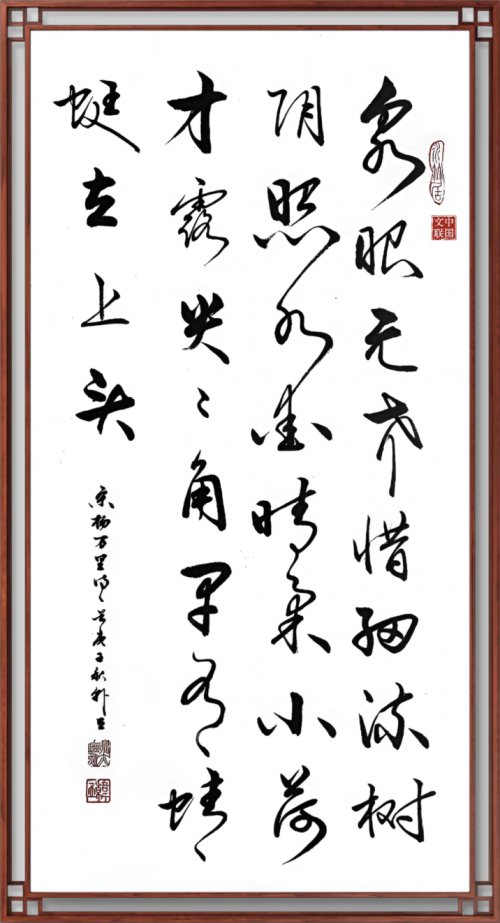 中国文联
泉眼无声惜细流树
阴照水爱晴柔小荷
才露尖々角早有蜻
蜓立上头
宋杨万里诗一首庚子秋